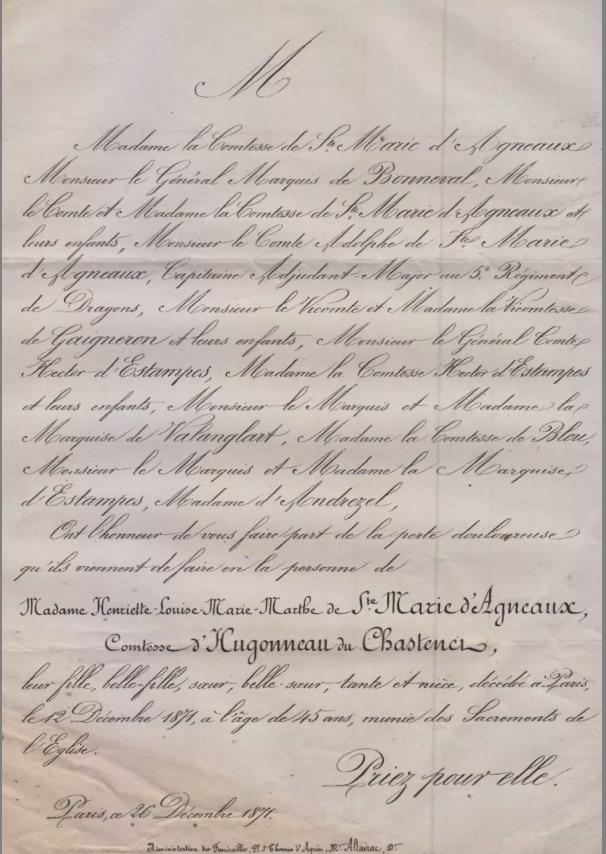 M
Madame la Comtesse de Ste Marie d'Agneaux
Monsieur le Général Marquis de Bonneval, Monsieur
le Comte et Madame la Comtesse de Ste Marie d'Agneaux et
leurs enfants, Monsieur le Comte Adolphe de Ste Marie
d'Agneaux, Capitaine Adjudant-Major au 5e Régiment
de Dragons, Monsieur le Vicomte et Madame la Vicomtesse
de Gaigneron et leurs enfants, Monsieur le Général Comte
Hector d'Estampes, Madame la Comtesse Hector d'Estampes
et leurs enfants, Monsieur le Marquis et Madame la
Marquise de Valanglart, Madame la Comtesse de Blou,
Monsieur le Marquis et Madame la Marquise
d'Estampes, Madame d'Andrezel,
Ont l'honneur de vous faire part de la perte douloureuse
qu'ils viennent de faire en la personne de
Madame Henriette-Louise-Marie-Marthe de Ste Marie d'Agneaux,
Comtesse d'Hugonneau du Chastenet,
leur fille, belle-fille, sœur, belle-sœur, tante et nièce, décédée à Paris,
le 12 Décembre 1871, à l'âge de 45 ans, munie des Sacrements de
l'Eglise.
Priez pour elle.
Paris, ce 26 Décembre 1871.
Administration des Funérailles, Pl. St Thomas d'Aquin, Mr Altairac, Dr